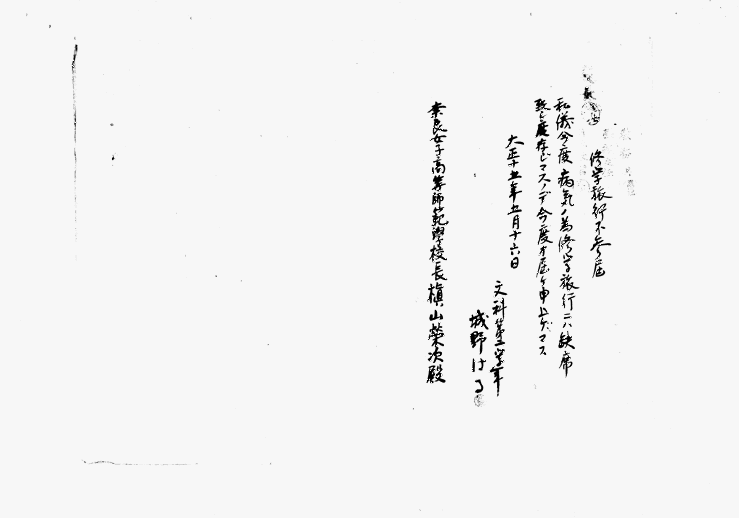 修学旅行不参届
私儀今度病気ノ為修学旅行ニハ缺席
致し度存じマスノデ今度御届ケ申上ゲマス
大正十五年五月十六日
文科第 学年
城野はる
奈良女子高等師範學校長槇山榮次殿